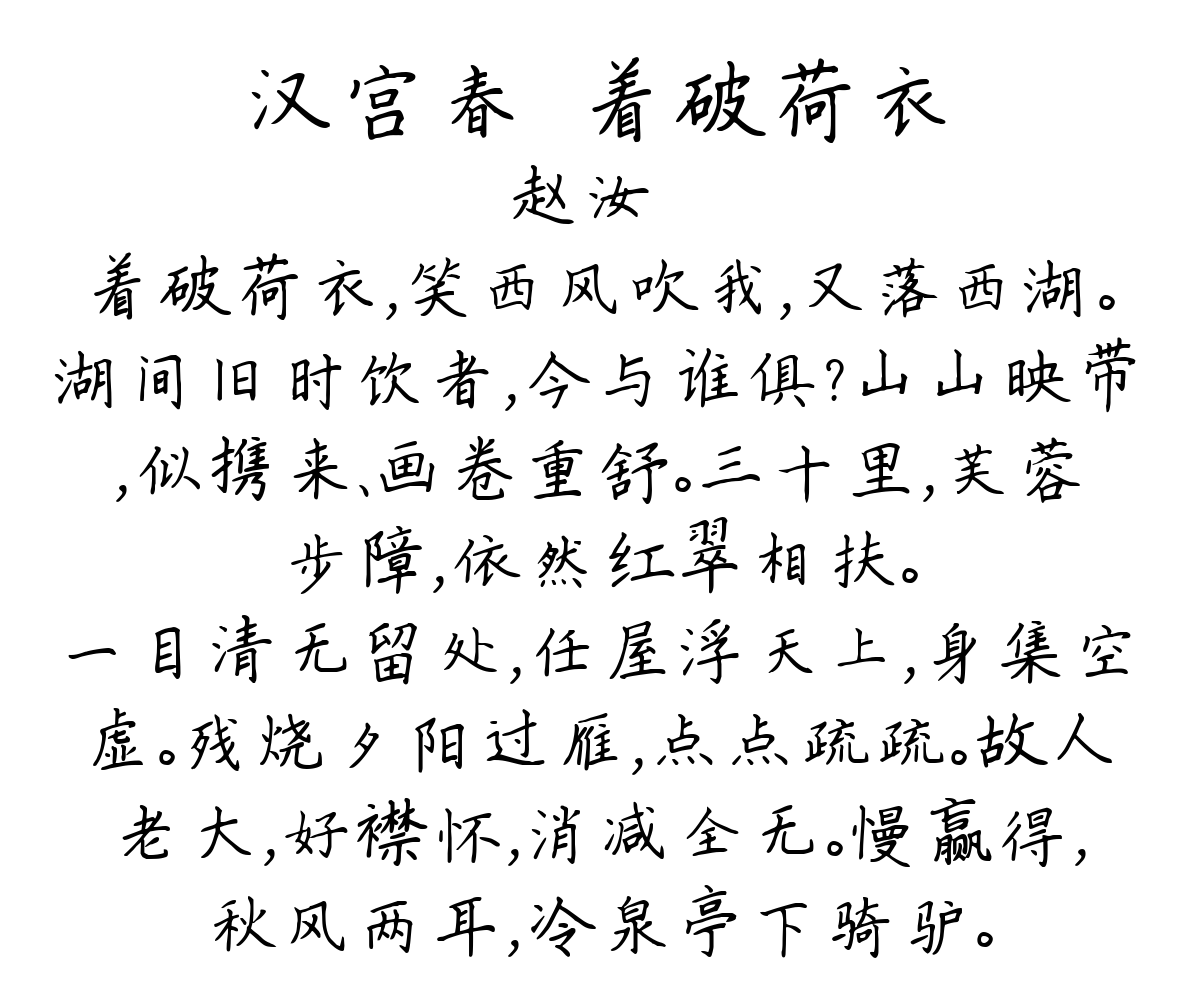 汉宫春 着破荷衣
赵汝
着破荷衣,笑西风吹我,又落西湖。
湖间旧时饮者,今与谁俱?山山映带
,似携来、画卷重舒。三十里,芙蓉
步障,依然红翠相扶。
一目清无留处,任屋浮天上,身集空
虚。残烧夕阳过雁,点点疏疏。故人
老大,好襟怀,消减全无。慢赢得,
秋风两耳,冷泉亭下骑驴。